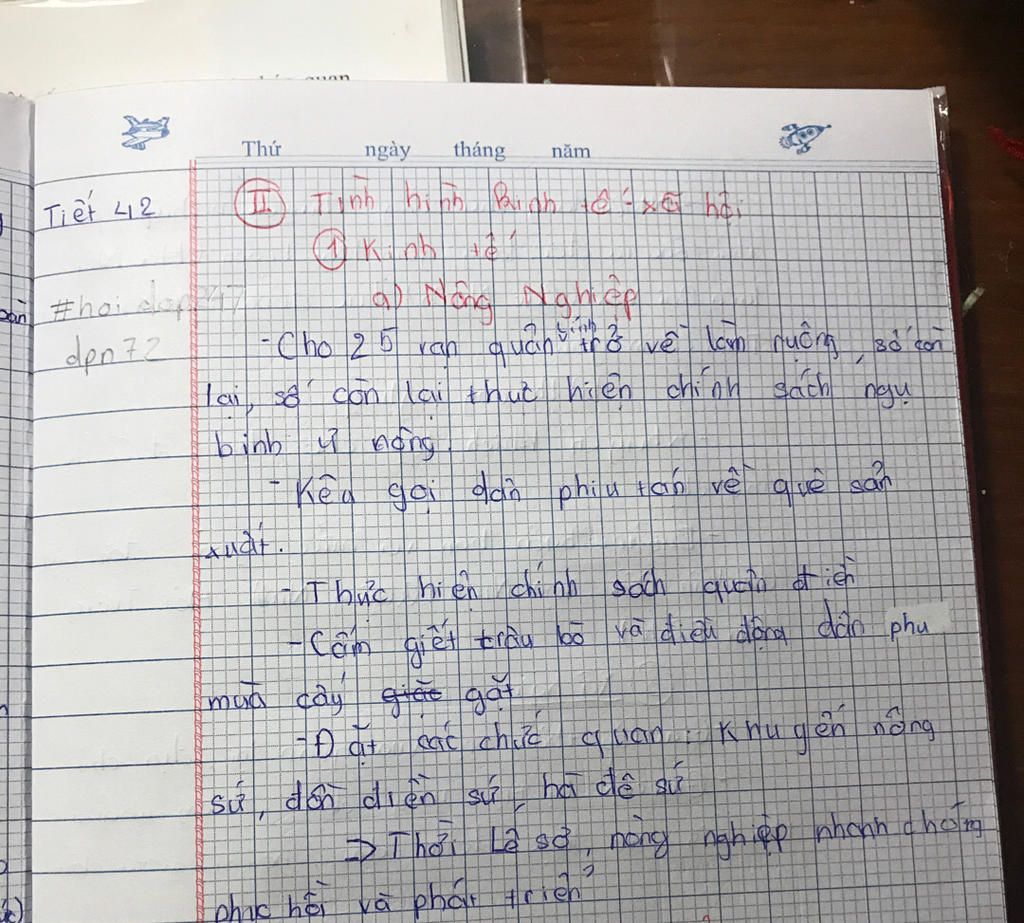 quan
Thứ ngày tháng năm
Tiết 42
II Tình hình kinh tế - xã hội
1 Kinh tế
a) Nông Nghiệp
#hoidap247
dpn72
- Cho 25 vạn quân binh trở về làm ruộng, số còn
lại, số còn lại thực hiện chính sách ngụ
binh ư nông
- Kêu gọi dân phiu tán về quê sản
xuất.
- Thực hiện chính sách quân điền
- Cấm giết trâu bò và điều động dân phu
mùa cấy giặc gặt
- Đặt các chức quan: Khuyến nông
sứ, đồn điền sứ, hà đê sứ
=> Thời Lê sơ, nông nghiệp nhanh chóng
phục hồi và phát triển